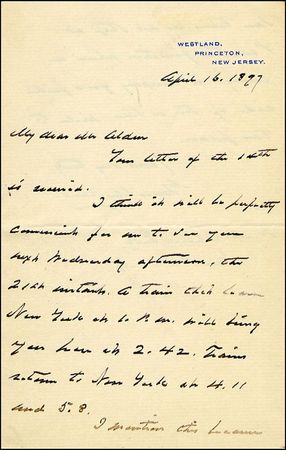 WESTLAND,
PRINCETON,
NEW JERSEY.
April 16. 1897
My dear Mr Alden
Your letter of the 14th
is received.
I think it will be perfectly
convenient for me to see you
next Wednesday afternoon, the
21st instant. A train
New York at 1. P.M. will bring
you here at 2.42. Trains
return to New York at 4.11
and 5.8.
I mention this because